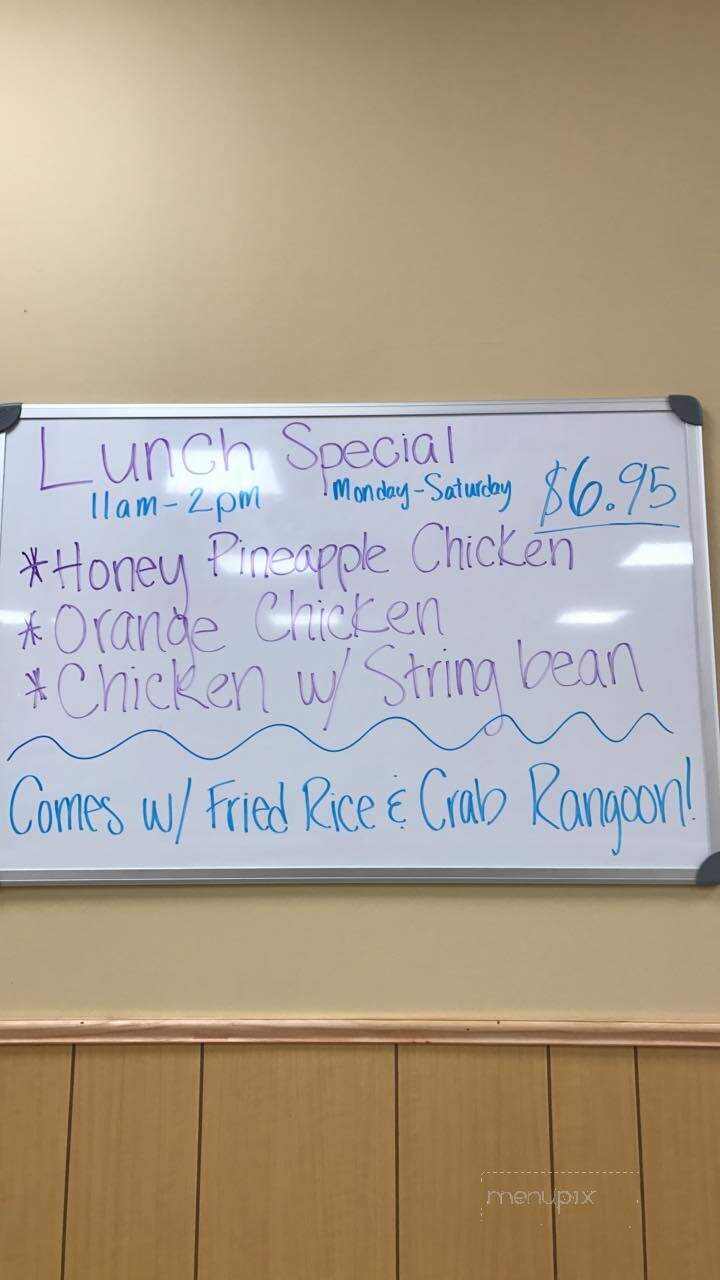 Lunch Special
11am-2pm Monday-Saturday $6.95
*Honey Pineapple Chicken
*Orange Chicken
*Chicken w/ String bean
Comes w/ Fried Rice & Crab Rangoon!
menupix